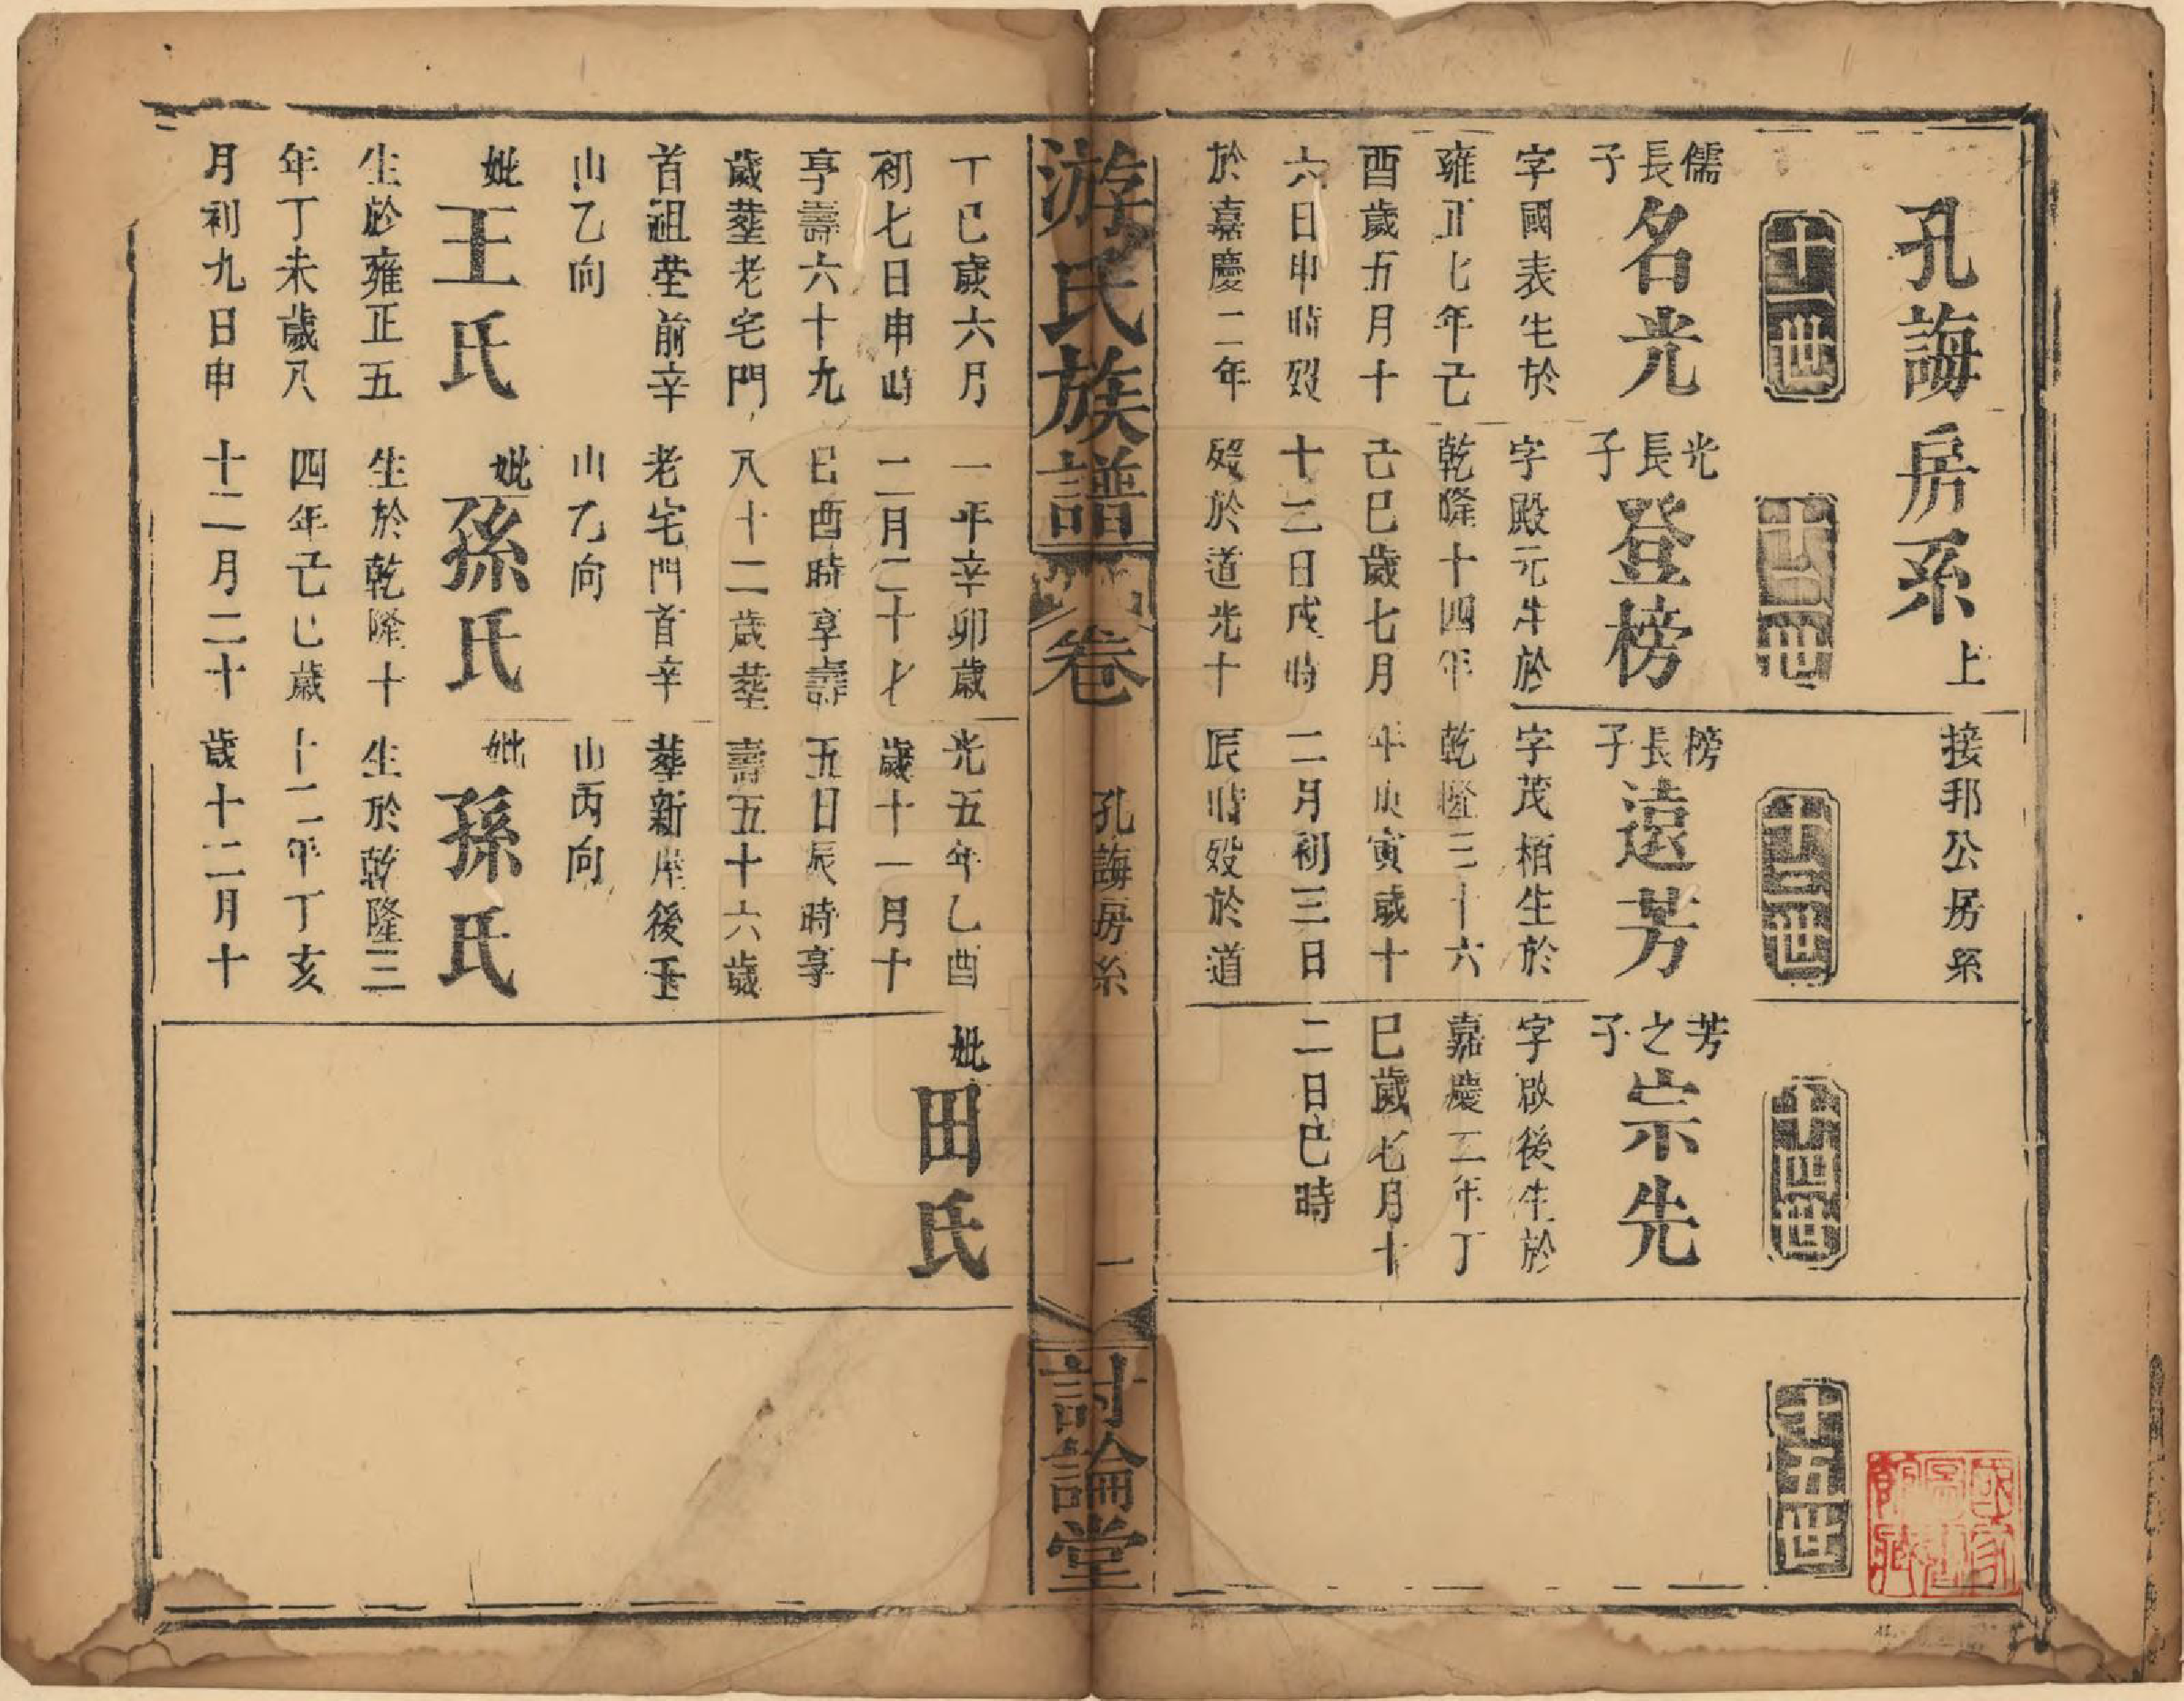 孔誨房系上
接邦公房系
十一世
儒長子
名光
字國表生於
雍正七年己
酉歲五月十
六日申時歿
於嘉慶二年
丁巳歲六月
初七日申時
享壽六十九
歲塟老宅門
首祖塋前辛
山乙向
妣王氏
生於雍正五
年丁未歲八
月初九日申
十二世
光長子
登榜
字殿元生於
乾隆十四年
己巳歲七月
十三日戌時
歿於道光十
一年辛卯歲
二月二十七
巳酉時享壽
八十二歲塟
老宅門首辛
山乙向
妣孫氏
生於乾隆十
四年己巳歲
十二月二十
十三世
榜長子
遠芳
字茂栢生於
乾隆三十六
年庚寅歲十
二月初三日
辰時歿於道
光五年乙酉
歲十一月十
五日辰時享
壽五十六歲
塟新庄後壬
山丙向
妣孫氏
生於乾隆三
十二年丁亥
歲十二月十
十四世
芳之子
宗先
字啟後生於
嘉慶二年丁
巳歲七月十
二日巳時
妣田氏
十五世
游氏族譜
卷
孔誨房系
一
討論堂
國家圖書館藏